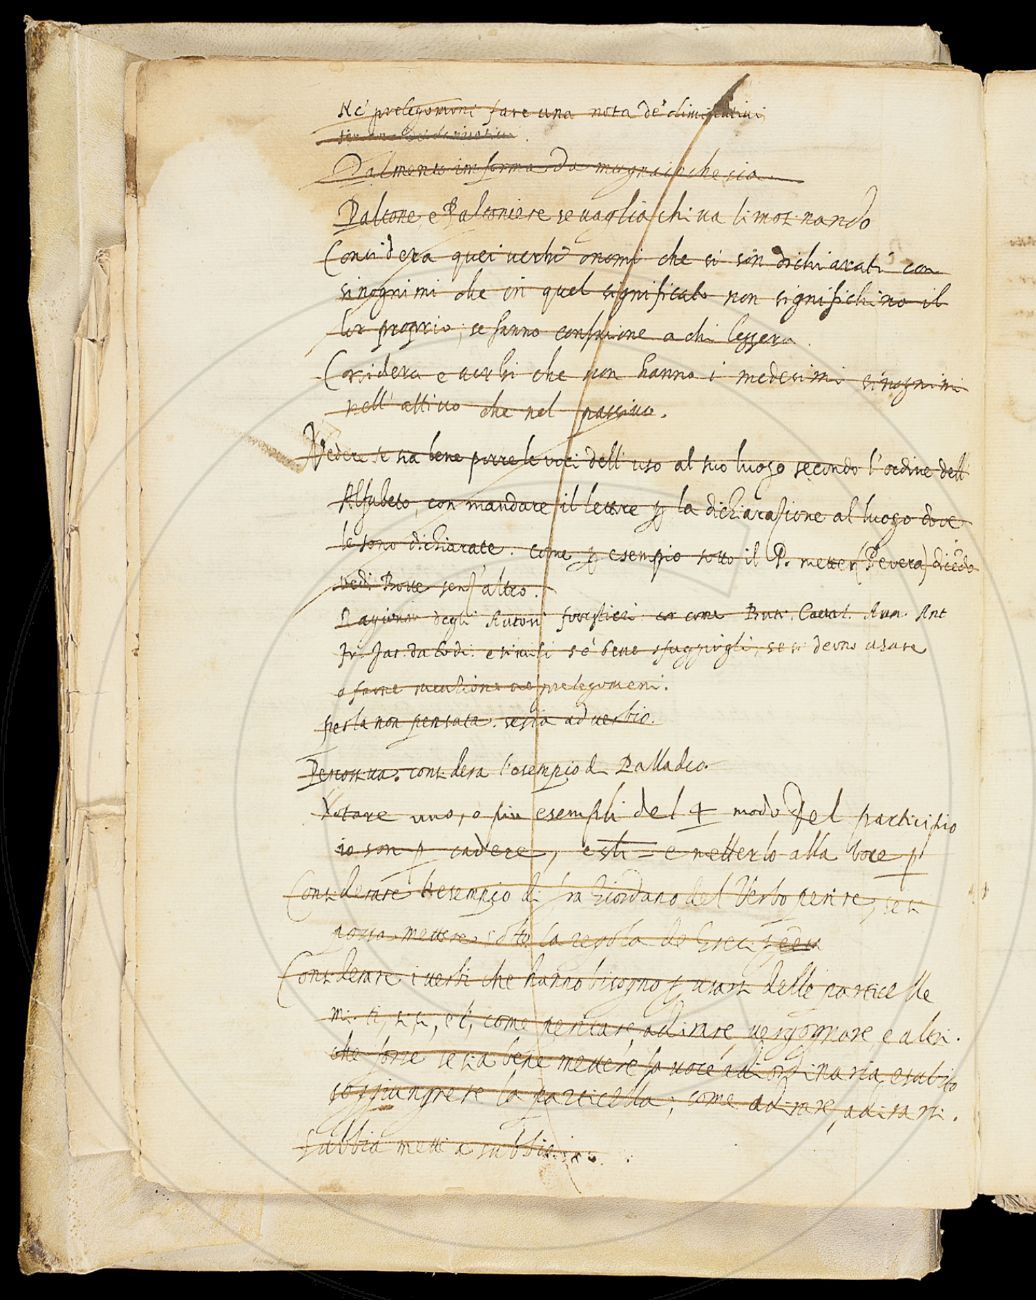 Ne' prolegomeni fare una nota de' diminutivi
Dal mento in forma da mugnai che sia
Palcone e Palconiere se vaglia chi va limosinando
Considera quei verbi ò nomi che si son dichiarati con
sinognimi che in quel significato non significhino il
lor proprio, se fanno confusione a chi leggera.
Considera e verbi che non hanno i medesimi sinognimi
nell' attivo che nel passivo.
Vedere se sia bene porre le voci dell' uso al suo luogo secondo l'ordine dell'
Alfabeto, con mandare il lettore p la dichiarasione al luogo dove
le sono dichiarate. come p esempio sotto il P. metter (Pevera) dicēdo
vedi Botte senz' altro.
degli Autori forestieri come Brut. Caval. Ann. Ant
Fr. Jac. da Todi. e simili s'è bene sfuggirgli, se si devno usare
o farne mentione ne prolegomeni.
per la non pensata. se sia adverbio.
considera l'esempio di Palladio.
Notare uno, o piu esempli del 4 modo del participio
io son p cadere, e metterlo alla voce p
Considerare l'esempio di fra Giordano del Verbo perire, se si
possa mettere sotto la regola de
Considerare i verbi che hanno bisogno p usarsi delle particelle
mi, ti, si, come pentire, adirare, vergognare e altri.
che forse se sia bene mettere la voce ordinaria, e subito
soggiungere la particella, come adirare, adirarsi.